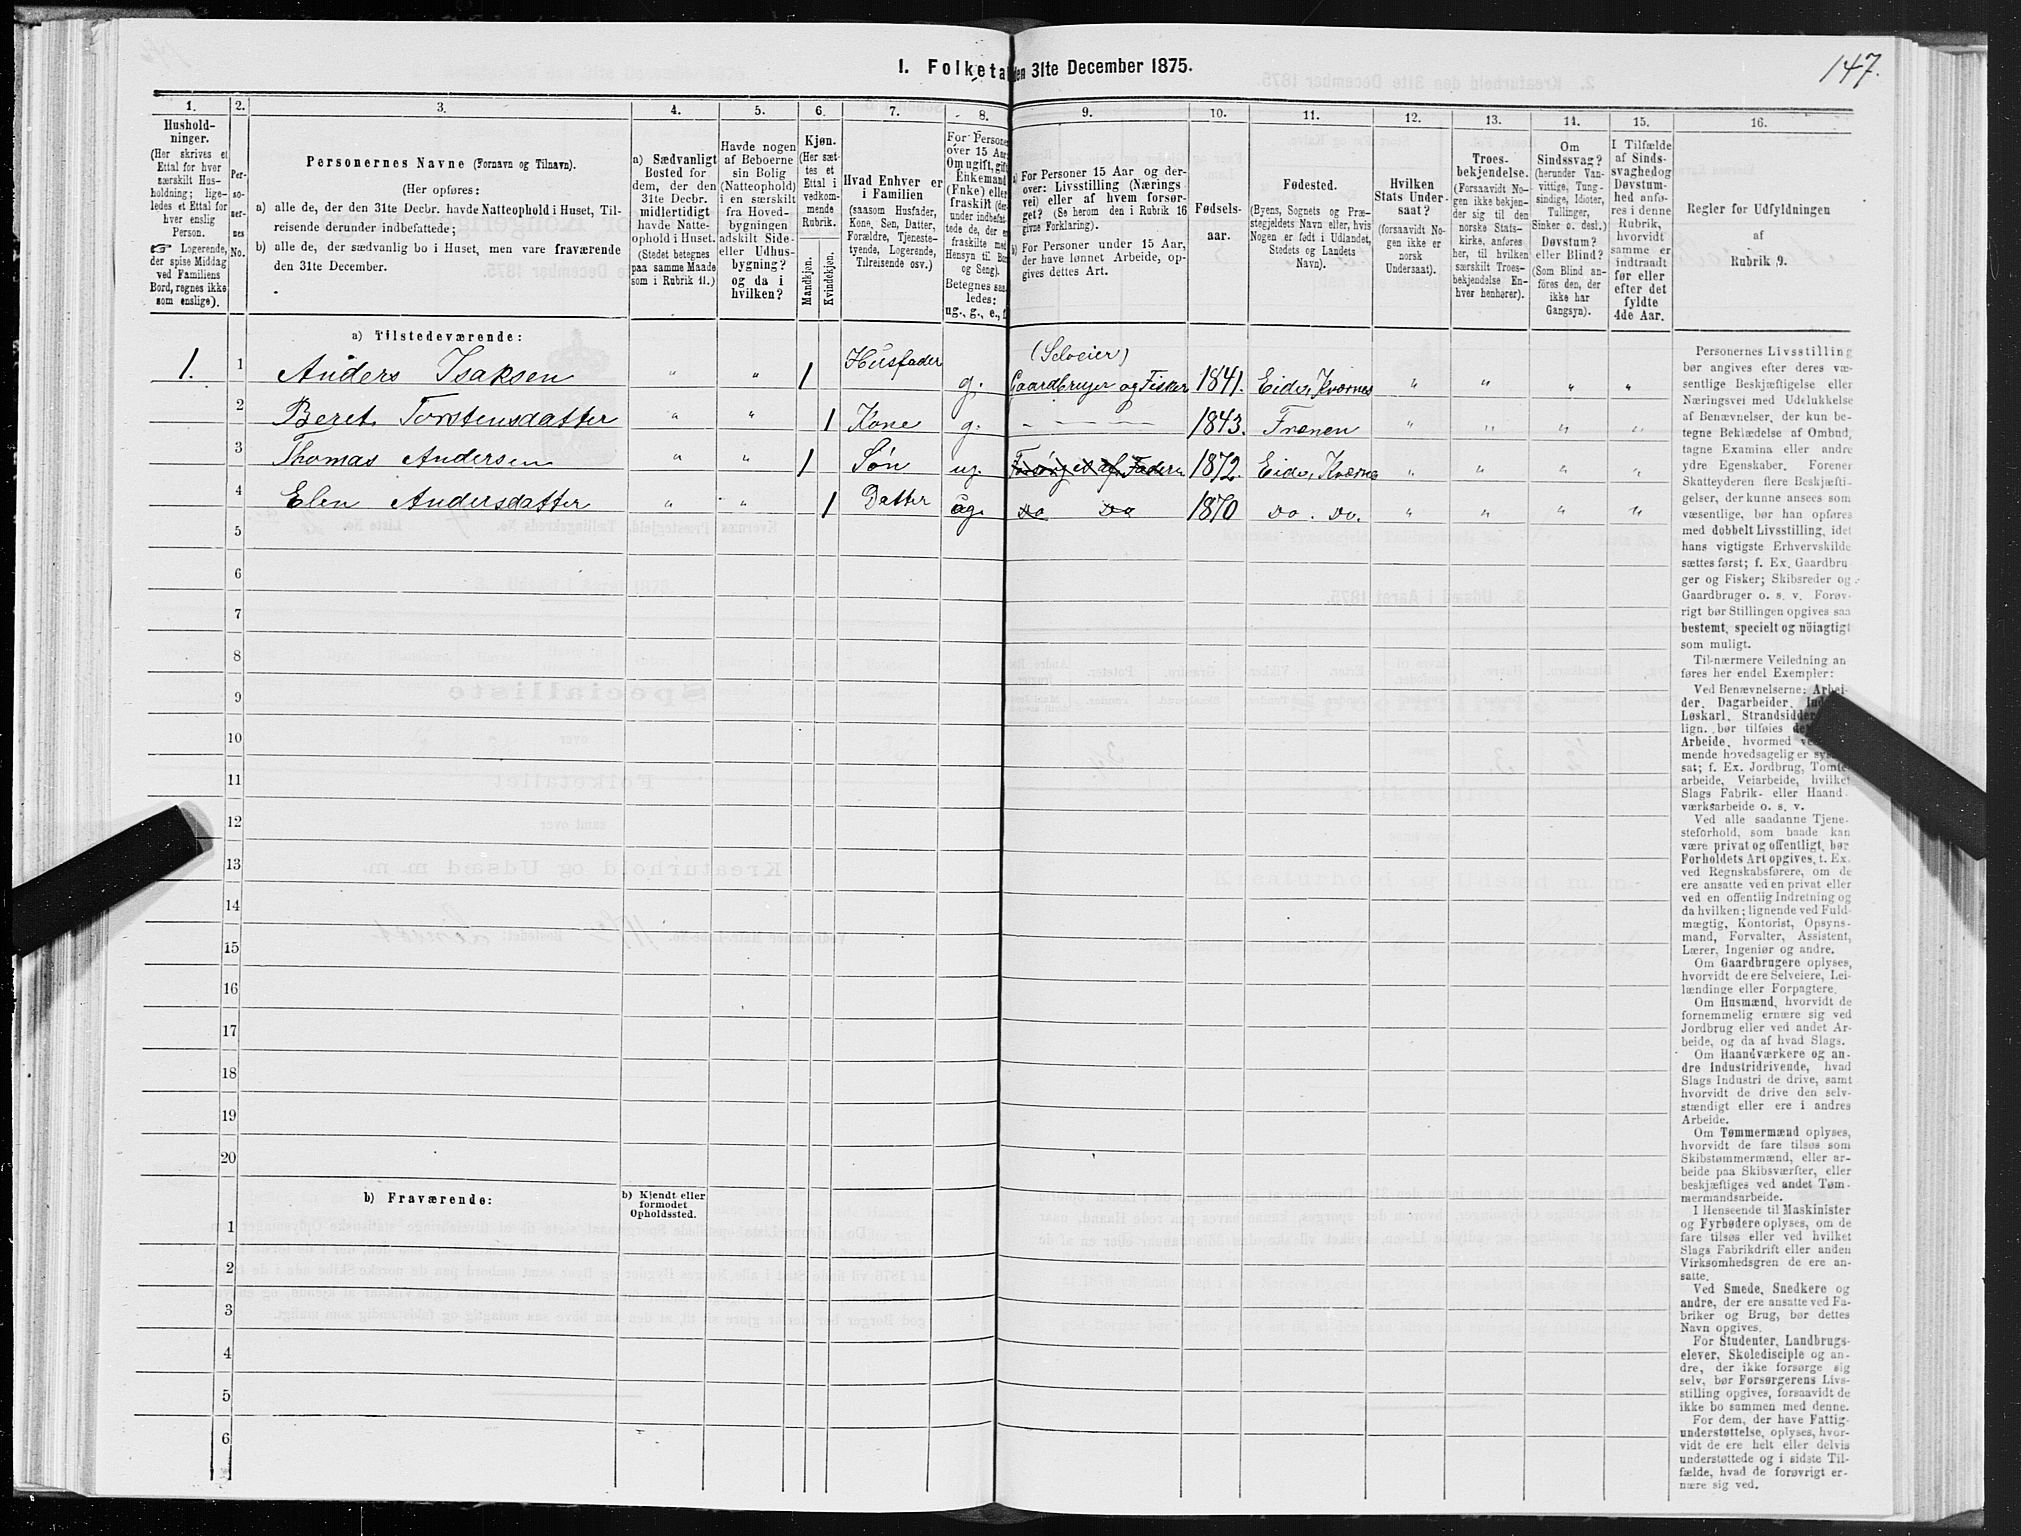 147.
I. Folketal den 31te December 1875.
1. 2. 3. 4. 5. 6. 7. 8. 9. 10. 11. 12. 13. 14. 15. 16.
Hushold-
ninger.
(Her skrives et
Ettal for hver
særskilt Hus-
holdning; lige-
ledes et Ettal for
hver enslig
Person.
☞ Logerende,
der spise Middag
ved Familiens
Bord, regnes ikke
som enslige).
Per-
so-
ner-
nes
No.
Personernes Navne (Fornavn og Tilnavn).
(Her opføres:
a) alle de, der den 31te Decbr. havde Natteophold i Huset, Til-
reisende derunder indbefattede;
b) alle de, der sædvanlig bo i Huset, men vare fraværende
den 31te December.
a) Sædvanligt
Bosted for
dem, der den
31te Decbr.
midlertidigt
havde Natte-
ophold i Huset.
(Stedet betegnes
paa samme Maade
som i Rubrik 11.)
Havde nogen
af Beboerne
sin Bolig
(Natteophold)
i en særskilt
fra Hoved-
bygningen
adskilt Side-
eller Udhus-
bygning?
og da i
hvilken?
Kjøn.
(Her sæt-
tes et
Ettal i
vedkom-
mende
Rubrik.
Mandkjøn.
Kvindekjøn.
Hvad Enhver er
i Familien
(saasom Husfader,
Kone, Søn, Datter,
Forældre, Tjeneste-
tyende, Logerende,
Tilreisende osv.)
For Persone
over 15 Aar
Om ugift, gift
Enkemand
(Enke) eller
fraskilt (der-
under indbefat-
tede de, der er
fraskilte med
Hensyn til Bor
og Seng).
Betegnes saa-
ledes:
ug., g., e., f.
a) For Personer 15 Aar og der-
over: Livsstilling (Nærings-
vei) eller af hvem forsør-
get? (Se herom den i Rubrik 16
givne Forklaring).
b) For Personer under 15 Aar,
der have lønnet Arbeide, op-
gives dettes Art.
Fødsels-
aar.
Fødested.
(Byens, Sognets og Præ-
stegjeldets Navn eller, hvis
Nogen er født i Udlandet,
Stedets og Landets
Navn).
Hvilken
Stats Under-
saat?
(forsaavidt No-
gen ikke er
norsk
Undersaat).
Troes-
bekjendelse.
(Forsaavidt No-
gen ikke bekjen-
der sig til den
norske Stats-
kirke, anføres
her, til hvilken
særskilt Troes-
bekjendelse En-
hver henhører).
Om
Sindssvag?
(herunder Van-
vittige, Tung-
sindige, Idioter,
Tullinger,
Sinker o. desl.)
Døvstum?
eller Blind?
(Som Blind an-
føres den, der
ikke har
Gangsyn).
I Tilfælde
af Sinds-
svaghed og
Døvstum-
hed anfø-
res i denne
Rubrik,
hvorvidt
samme er
indtraadt
før eller
efter det
fyldte
4de Aar.
Regler for Udfyldningen
af
Rubrik 9.
a) Tilstedeværende:
1. 1 Anders Isaksen " " 1 Husfader g. (Selveier) Gaardbruger og Fisker 1841. Eide, Kværnes " " " "
2 Beret Torstensdatter " " 1 Kone g. - - - - 1843. Frænen " " " "
3 Thomas Andersen " " 1 Søn ug. Forsørget af Faderen 1872. Eide, Kværnes " " " "
4 Elen Andersdatter " " 1 Datter ug. Do Do 1870 Do. Do. " " " "
5
6
7
8
9
10
11
12
13
14
15
16
17
18
19
20
b) Fraværende:
b) Kjendt eller
formodet
Opholdssted.
1
2
3
4
5
6
Personernes Livsstilling
bør angives efter deres væ-
sentlige Beskjæftigelse eller
Næringsvei med Udelukkelse
af Benævnelser, der kun be-
tegne Beklædelse af Ombud,
tagne Examina eller andre
ydre Egenskaber. Forener
Skatteyderen flere Beskjæfti-
gelser, der kunne ansees som
væsentlige, bør han opføres
med dobbelt Livsstilling, idet
hans vigtigste Erhvervskilde
sættes først; f. Ex. Gaardbru-
ger og Fisker; Skibsreder og
Gaardbruger o. s. v. Forøv-
rigt bør Stillingen opgives saa
bestemt, specielt og nöiagtigt
som muligt.
Til nærmere Veiledning an
føres her endel Exempler:
Ved Benævnelserne: Arbei-
der, Dagarbeider,
Løskarl, Strandsidder
lign. bør tilføies
Arbeide, hvormed
mende hovedsagelig er
sat; f. Ex. Jordbrug, Tomte-
arbeide, Veiarbeide, hvilket
Slags Fabrik- eller Haand
værksarbeide o. s. v.
Ved alle saadanne Tjene-
steforhold, som baade kan
være privat og offentligt, bør
Forholdets Art opgives, t. Ex.
ved Regnskabsførere, om de
ere ansatte ved en privat eller
ved en offentlig Indretning og
da hvilken; lignende ved Fuld-
mægtig, Kontorist, Opsyns-
mand, Forvalter, Assistent,
Lærer, Ingeniør og andre.
Om Gaardbrugere oplyses,
hvorvidt de ere Selveiere, Lei-
lændinge eller Forpagtere.
Om Husmænd, hvorvidt de
fornemmelig ernære sig ved
Jordbrug eller ved andet Ar-
beide, og da af hvad Slags.
Om Haandværkere og an-
dre Industridrivende, hvad
Slags Industri de drive, samt
hvorvidt de drive den selv-
stændigt eller ere i andres
Arbeide.
Om Tømmermænd oplyses,
hvorvidt de fare tilsøs som
Skibstømmermænd, eller ar-
beide paa Skibsværfter, eller
beskjæftiges ved andet Tøm-
mermandsarbeide.
I Henseende til Maskinister
og Fyrbødere oplyses, om de
fare tilsøs eller ved hvilket
Slags Fabrikdrift eller anden
Virksomhedsgren de ere an-
satte.
Ved Smede, Snedkere og
andre, der ere ansatte ved Fa-
briker og Brug, bør dettes
Navn opgives.
For Studenter, Landbrugs-
elever, Skoledisciple og an-
dre, der ikke forsørge sig
selv, bør Forsørgerens Livs-
stilling opgives, forsaavidt de
ikke bo sammen med denne.
For dem, der have Fattig-
understøttelse, oplyses, hvor-
vidt de ere helt eller delvis
understøttede og i sidste Til-
fælde, hvad de forøvrigt er-
nære sig ved.